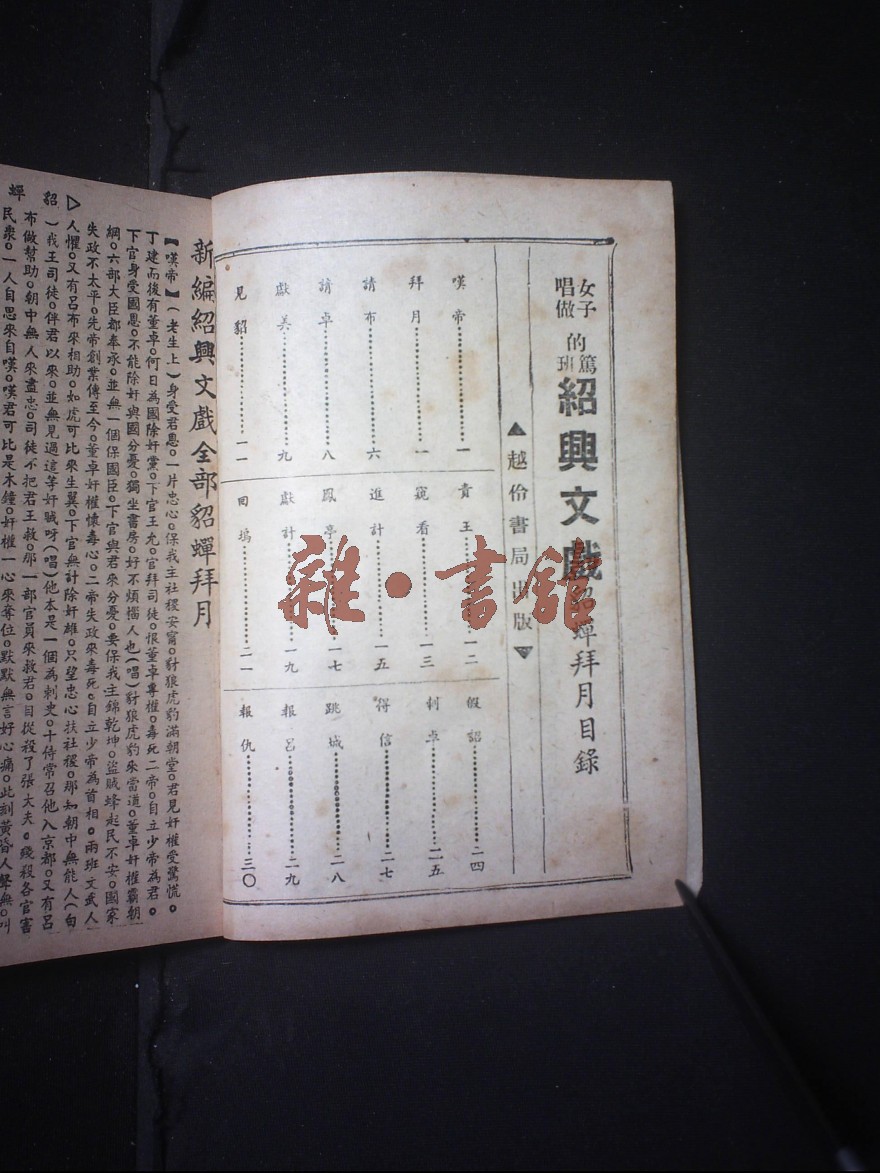 女子
唱做
的篤
班
紹興文戲貂蟬拜月目錄
▲越伶書局出版▼
嘆帝…………一
拜月…………一
請布…………六
請卓…………八
獻美…………九
見貂…………一一
責王…………一二
窺看…………一三
進計…………一五
鳳亭…………一七
獻計…………一九
回塢…………二一
假詔…………二四
刺卓…………二五
得信…………二七
跳城…………二八
報呂…………二九
報仇…………三〇
雜·書館
新編紹興文戲全部貂蟬拜月
【嘆帝】(老生上)身受君恩。一片忠心。保我主社稷安甯。豺狼虎豹滿朝堂。君見奸權受驚慌。
丁建而後有董卓。何日為國除奸黨。下官王允。官拜司徒。恨董卓專權。毒死二帝。自立少帝為君。
下官身受國恩。不能除奸與國分憂。獨坐書房。好不煩惱人也(唱)豺狼虎豹來當道。董卓奸權霸朝
綱。六部大臣都奉承。並無一個保國臣。下官與君來分憂。要保我主錦乾坤。盜賊蜂起民不安。國家
失政不太平。先帝創業傳至今。董卓奸權懷毒心。二帝失政來毒死。自立少帝為首相。兩班文武人
人懼。又有呂布來相助。如虎可比來生翼。下官無計除奸雄。只望忠心扶社稷。那知朝中無能人(白
)我王司徒。伴君以來。並無見過這等奸賊呀(唱)他本是一個為刺史。十侍常召他入京都。又有呂
布做幫助。朝中無人來盡忠。司徒不把君王救。那一部官員來救君。自從殺了張大夫。後殺各官害
民衆。一人自思來自嘆。嘆君可比是木鐘。奸權一心來奪位。默默無言好心痛。此刻黃昏人聲無。叫
▷
貂
蟬